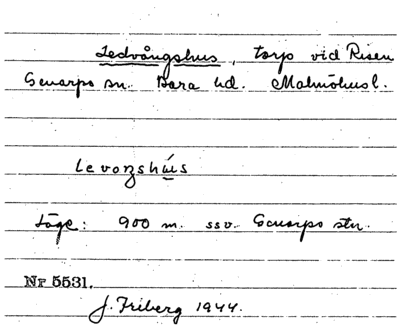 Ledvångshus, torp vid Risen
Genarps sn. Bara hd. Malmöhus l.
levoŋshús
Läge: 900 m. ssv. Genarps stn.
Nr 5531.
J. Friberg 1944.